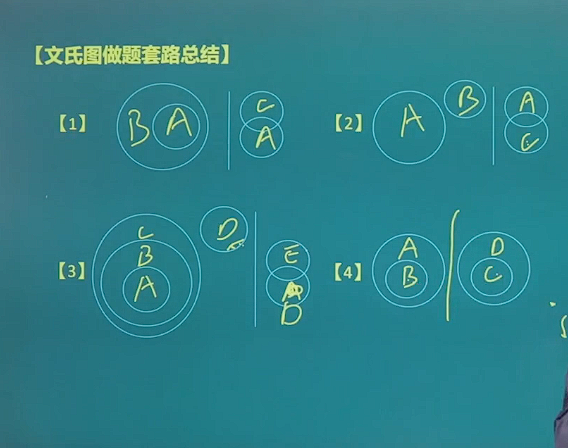 【文氏图做题套路总结】
【1】 B A C A
【2】 A B A C
【3】 C B A D E D
【4】 A B D C